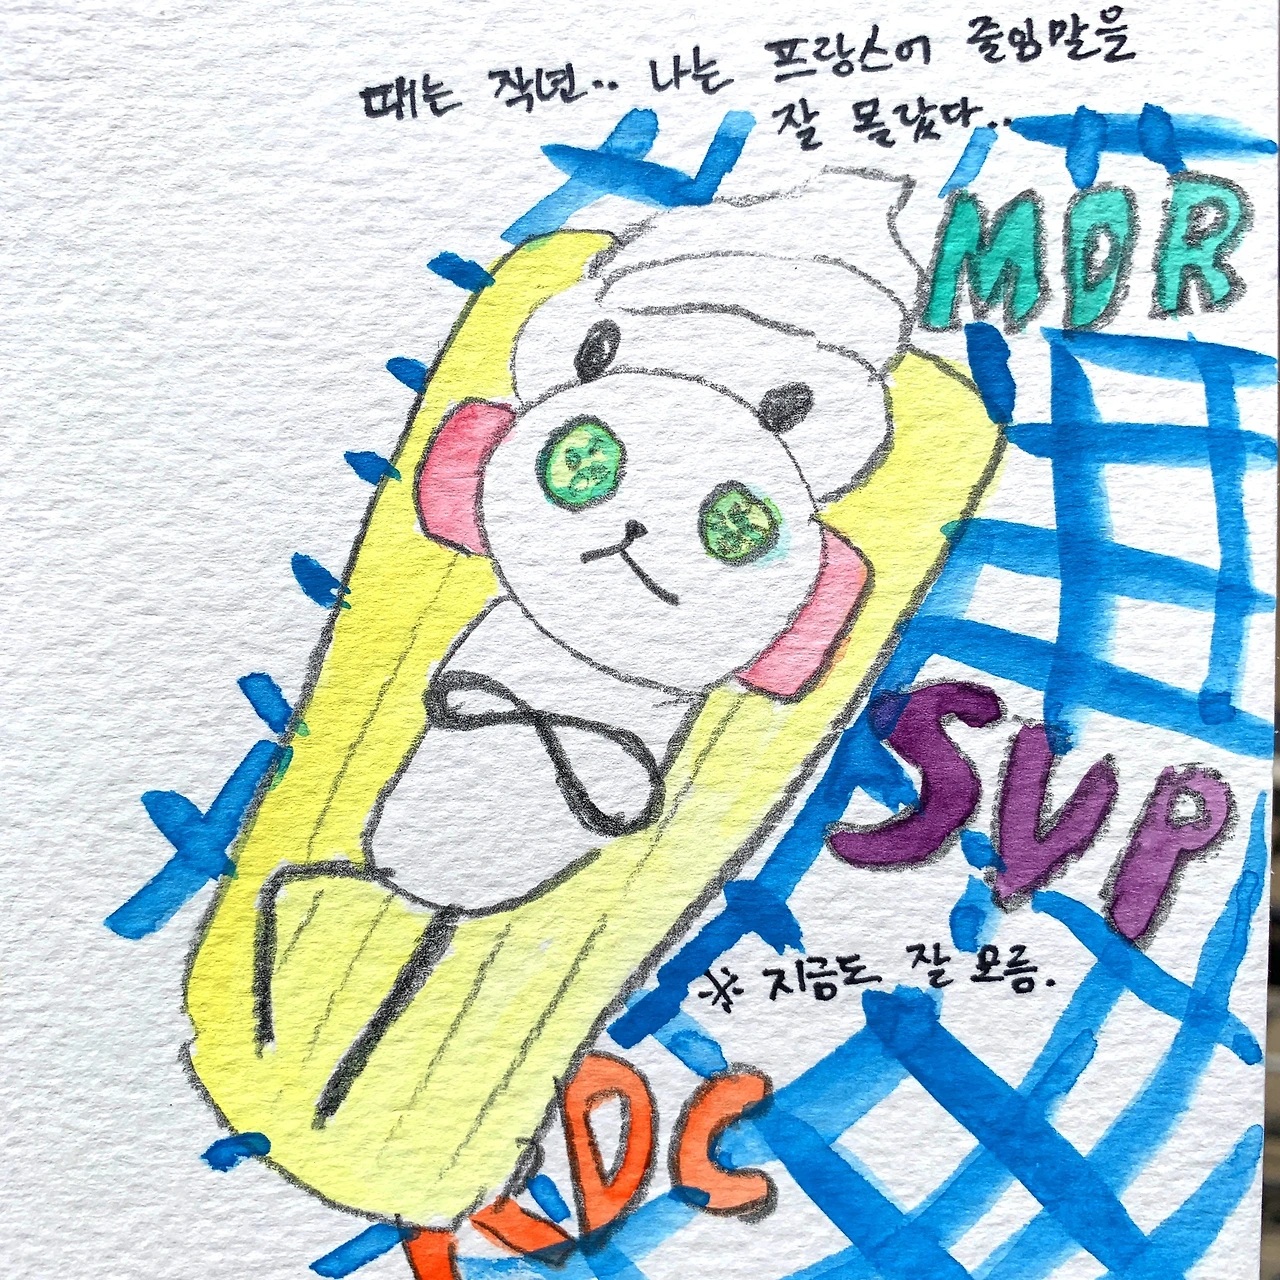 때는 작년.. 나는 프랑스어 줄임말을
잘 몰랐다..
MDR
SVP
※ 지금도 잘 모름.
RDC